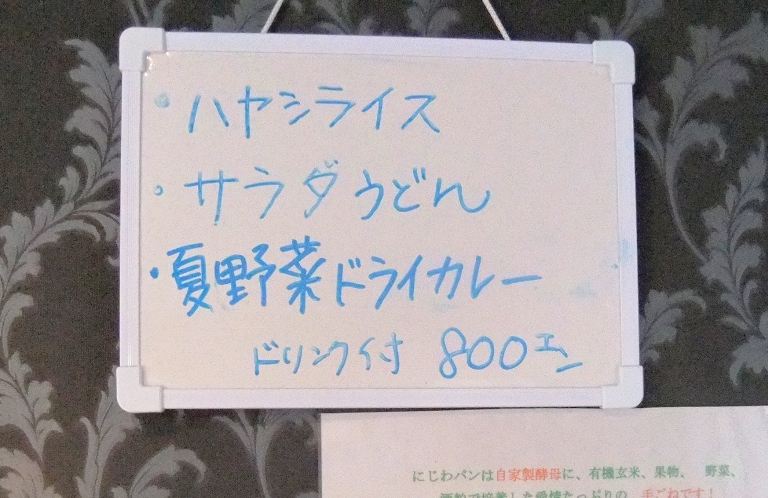 ・ハヤシライス
・サラダうどん
・夏野菜ドライカレー
ドリンク付 800エン
にじわパンは自家製酵母に、有機玄米、果物、 野菜、
酒粕で培養した愛情たっぷりの 手ごねです!